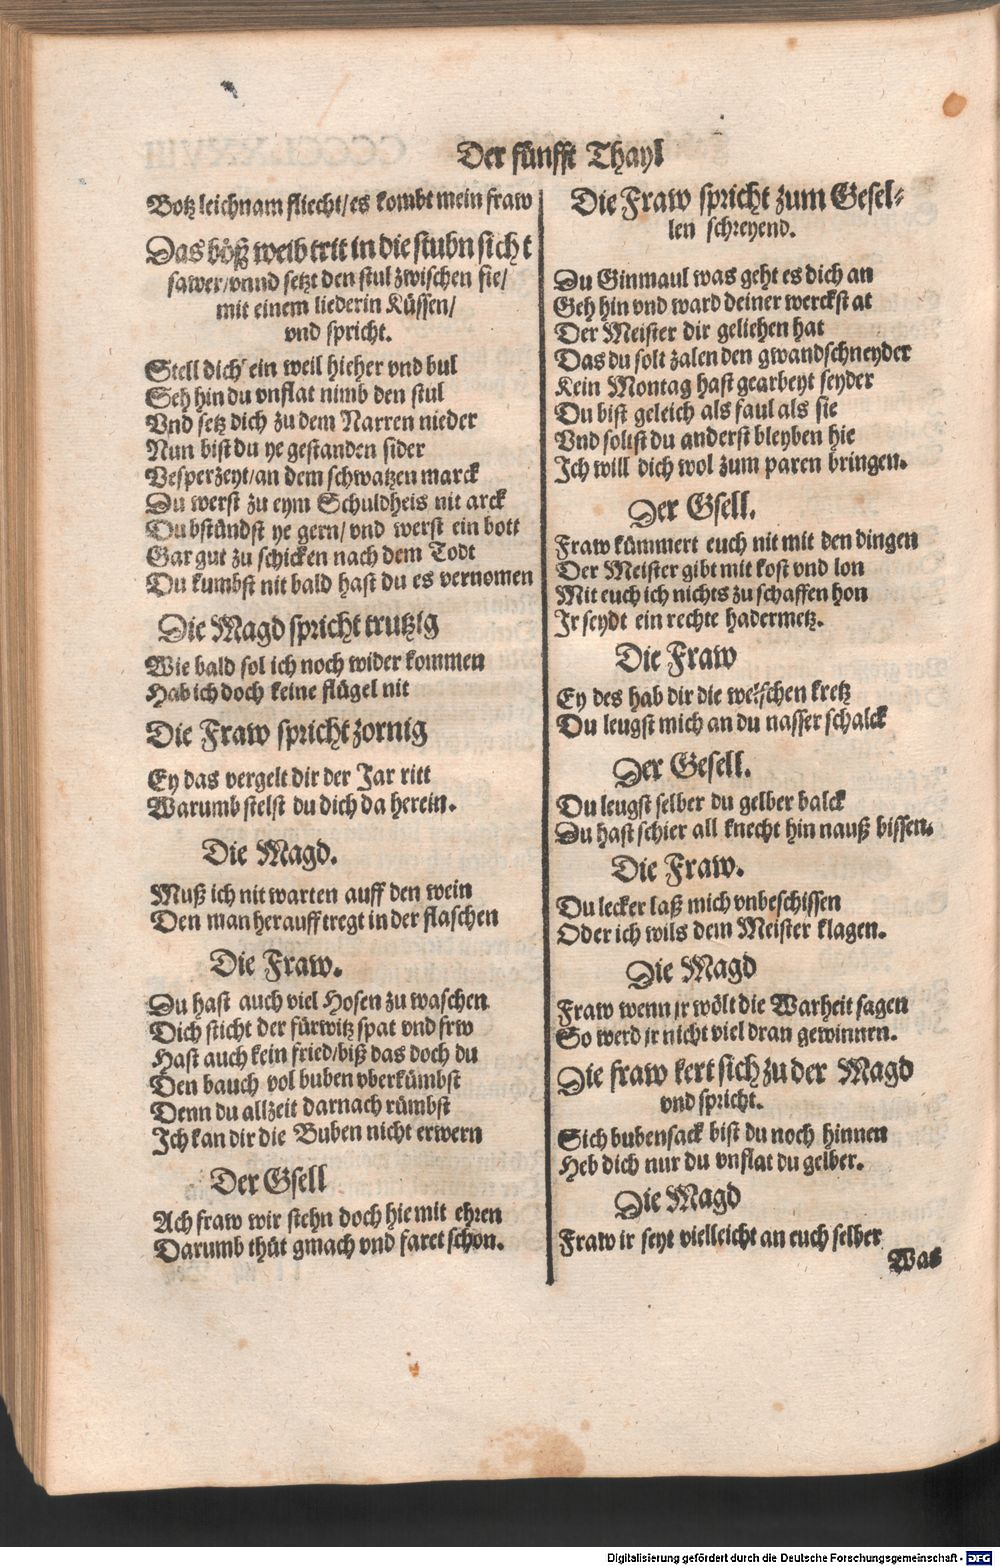 Der fünfft Thayl
Botz leichnam fliecht/es kombt mein fraw
Das böß weib trit in die stubn sicht
sawer/vnnd setzt den stul zwischen sie/
mit einem liederin Küssen/
vnd spricht.
Stell dich ein weil hieher vnd bul
Seh hin du vnflat nimb den stul
Vnd setz dich zu dem Narren nieder
Nun bist du ye gestanden sider
Vesperzeyt/an dem schwatzen marck
Du werst zu eym Schuldheis nit arck
Du bstündst ye gern/ vnd werst ein bott
Gar gut zu schicken nach dem Todt
Du kumbst nit bald hast du es vernomen
Die Magd spricht trutzig
Wie bald sol ich noch wider kommen
Hab ich doch keine flügel nit
Die Fraw spricht zornig
Ey das vergelt dir der Jar ritt
Warumb stelst du dich da herein.
Die Magd.
Muß ich nit warten auff den wein
Den man herauff tregt in der flaschen
Die Fraw.
Du hast auch viel Hosen zu waschen
Dich sticht der fürwitz spat vnd frw
Hast auch kein fried/biß das doch du
Den bauch vol buben vberkümbst
Denn du allzeit darnach rümbst
Ich kan dir die Buben nicht erwern
Der Gsell
Ach fraw wir stehn doch hie mit ehren
Darumb thüt gmach vnd faret schon.
Die Fraw spricht zum Gesel-
len schreyend.
Du Ginmaul was geht es dich an
Geh hin vnd ward deiner werckstat
Der Meister dir geliehen hat
Das du solt zalen den gwandschneyder
Kein Montag hast gearbeyt seyder
Du bist geleich als faul als sie
Vnd soltst du anderst bleyben hie
Ich will dich wol zum paren bringen.
Der Gsell.
Fraw kümmert euch nit mit den dingen
Der Meister gibt mit kost vnd lon
Mit euch ich nichts zu schaffen hon
Ir seydt ein rechte hadermetz.
Die Fraw
Ey des hab dir die welschen kretz
Du leugst mich an du nasser schalck
Der Gesell.
Du leugst selber du gelber balck
Du hast schier all knecht hin nauß bissen.
Die Fraw.
Du lecker laß mich vnbeschissen
Oder ich wils dem Meister klagen.
Die Magd
Fraw wenn jr wölt die Warheit sagen
So werd jr nicht viel dran gewinnen.
Die fraw kert sich zu der Magd
vnd spricht.
Sich bubensack bist du noch hinnen
Heb dich nur du vnflat du gelber.
Die Magd
Fraw ir seyt vielleicht an euch selber
Was
Digitalisierung gefördert durch die Deutsche Forschungsgemeinschaft - DFG